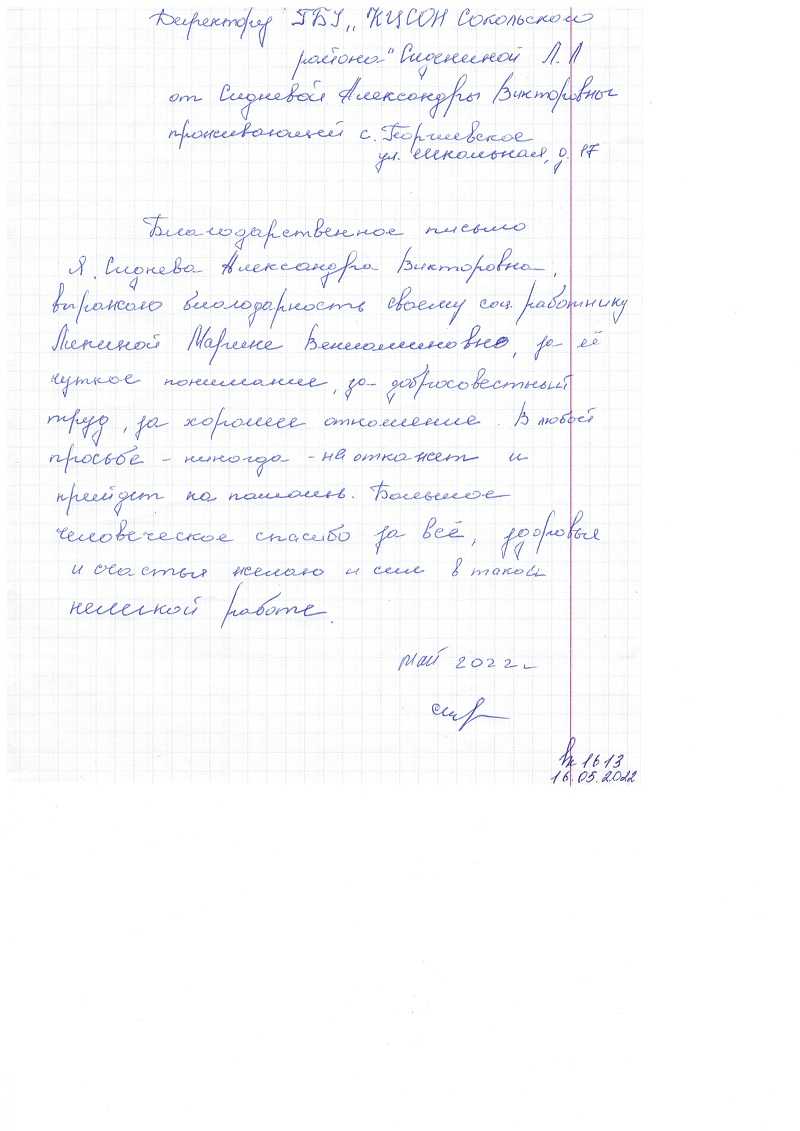 Директору ГБУ „КЦСОН Сокольского
района" Л. Л
от Сидневой Александры Викторовны
проживающей с. Георгиевское
ул. Школьная, д. 17
Благодарственное письмо
Я, Сиднева Александра Викторовна,
выражаю благодарность своему соц. работнику
Марине Вениаминовне, за её
чуткое понимание, за добросовестный
труд, за хорошее отношение. В любой
просьбе - никогда - не откажет и
прийдет на помощь. Большое
человеческое спасибо за всё, здоровья
и счастья желаю и сил в такой
нелегкой работе.
май 2022г.
вх 1613
16.05.2022